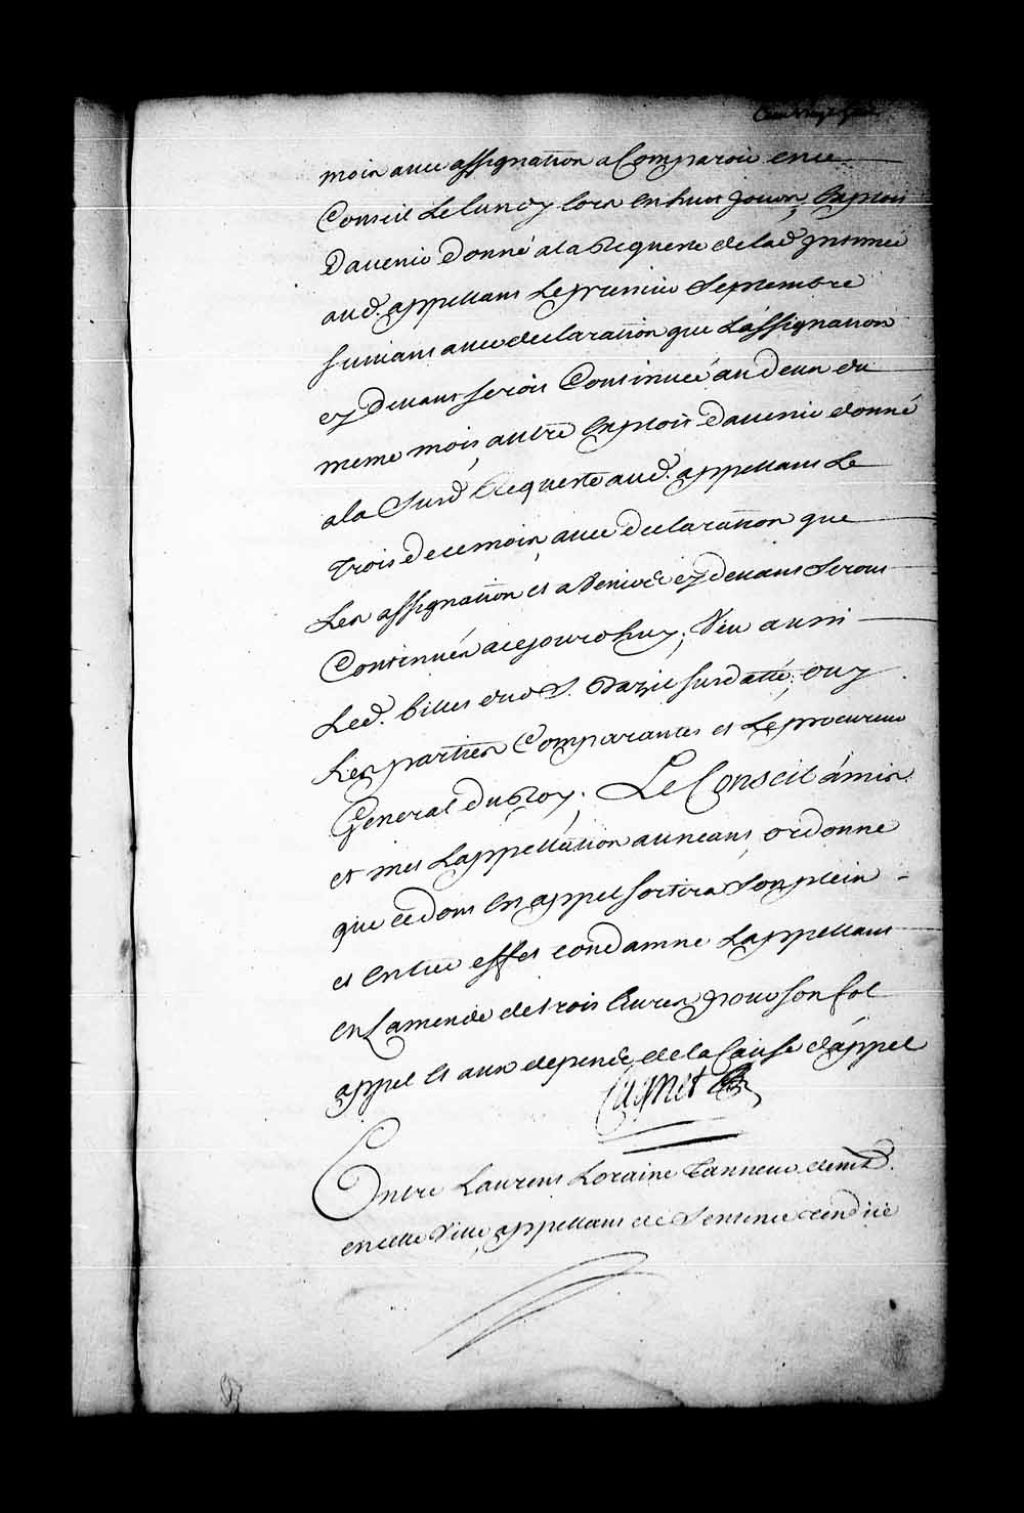 mois avec assignation a Comparoir en ce
Conseil Le lundy lors en huit jours, Exploit
D'avenir Donné a la Requeste de lad. Intimée
aud. appellant Le premier Septembre
Suivant avec declaration que L'assignation
cy Devant seroit Continuée au deux du
meme mois, autre Exploit D'avenir donné
a la Susd. Requeste aud. appellant Le
trois de ce mois, avec declaration que
Les assignation et avenir cy devant Seront
Continués a cejourdhuy; Veu aussi
Led. billet dud. S. Bazil susdatté; ouy
Les parties Comparantes et Le procureur
General du Roy; Le Conseil à mis
et met L'appellation au neant, ordonne
que ce dont est appel sortira son plein
et entier effet condamne L'appellant
en L'amende de trois livres pour son fol
appel et aux depends de la Cause d'appel
Cugnet
Entre Laurent Loraine tanneur demt.
en cette Ville, appellant de Sentence rendüe